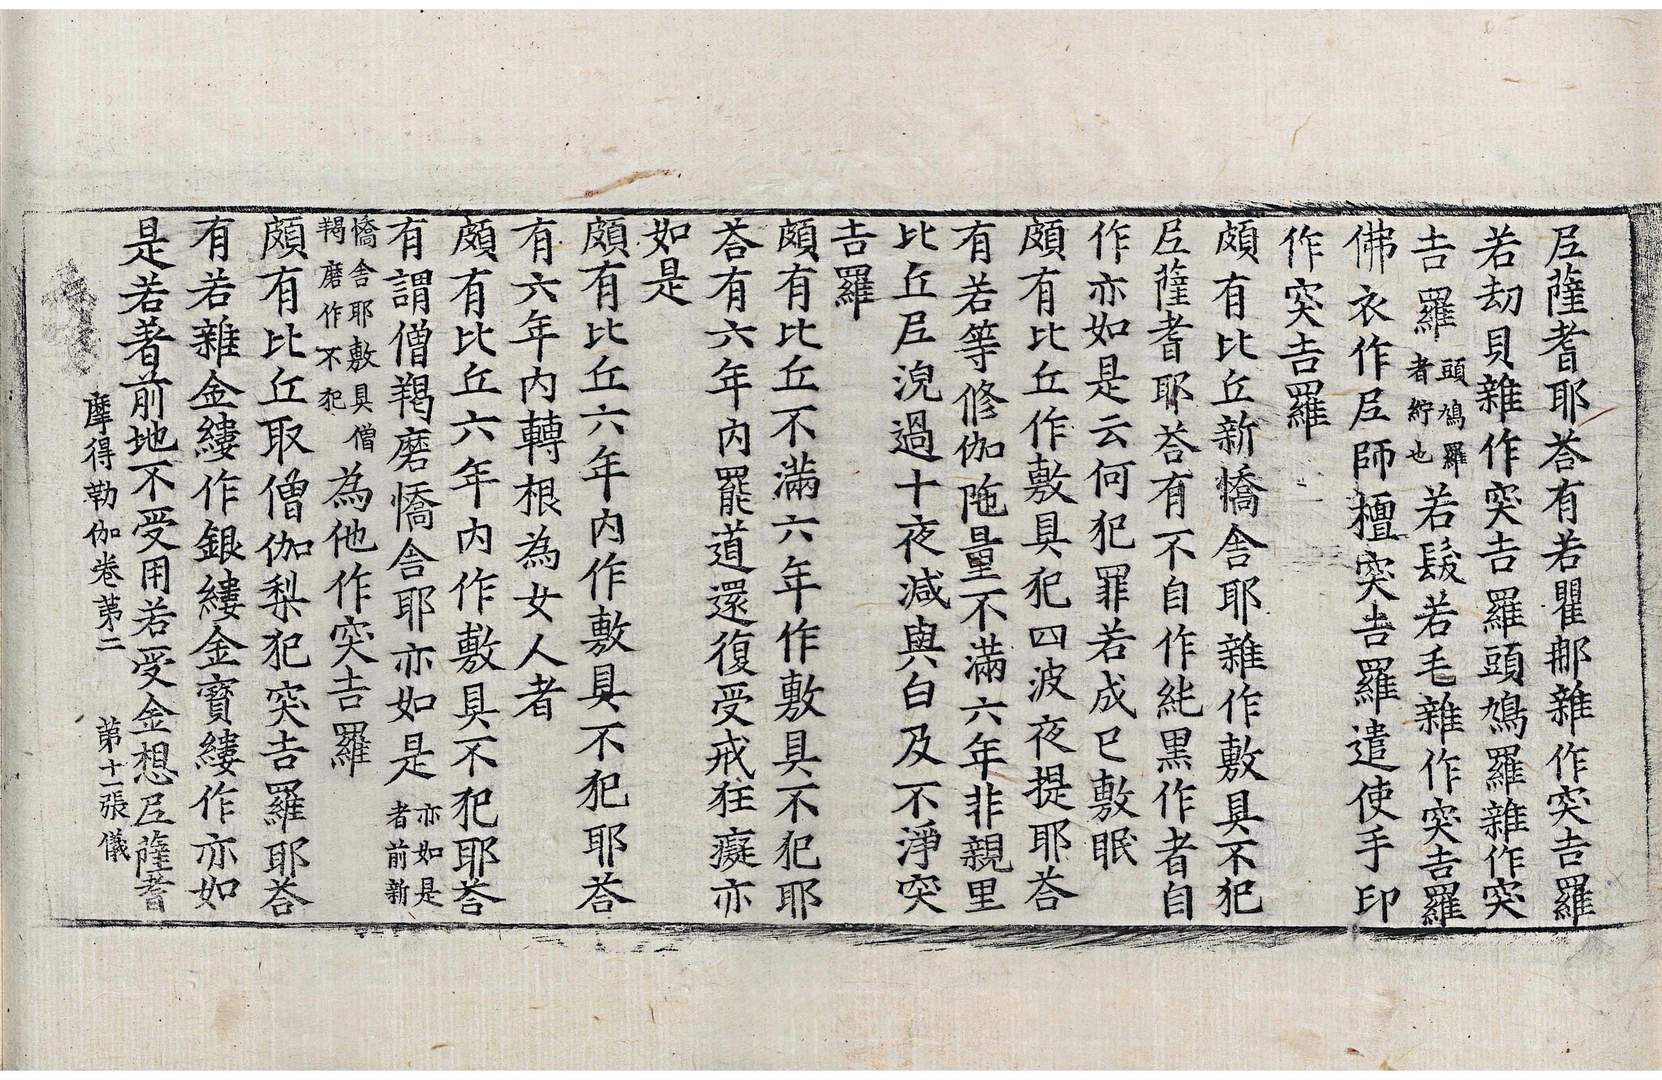 尼薩耆耶荅有若瞿那雜作突吉羅
若劫貝雜作突吉羅頭鳩羅雜作突
吉羅頭鳩羅者紵也若髮若毛雜作突吉羅
佛衣作尼師檀突吉羅遣使手印
作突吉羅
頗有比丘新憍舍耶雜作敷具不犯
尼薩耆耶荅有不自作純黑作者自
作亦如是云何犯罪若成已敷眠
頗有比丘作敷具犯四波夜提耶荅
有若等修伽陁量不滿六年非親里
比丘尼浣過十夜減與白及不淨突
吉羅
頗有比丘不滿六年作敷具不犯耶
荅有六年內罷道還復受戒狂癡亦
如是
頗有比丘六年內作敷具不犯耶荅
有六年內轉根為女人者
頗有比丘六年內作敷具不犯耶荅
有謂僧羯磨憍舍耶亦如是亦如是者前新
憍舍耶敷具僧羯磨作不犯為他作突吉羅
頗有比丘取僧伽梨犯突吉羅耶荅
有若雜金縷作銀縷金寶縷作亦如
是若著前地不受用若受金想尼薩耆
摩得勒伽卷第二 第十一張 儀